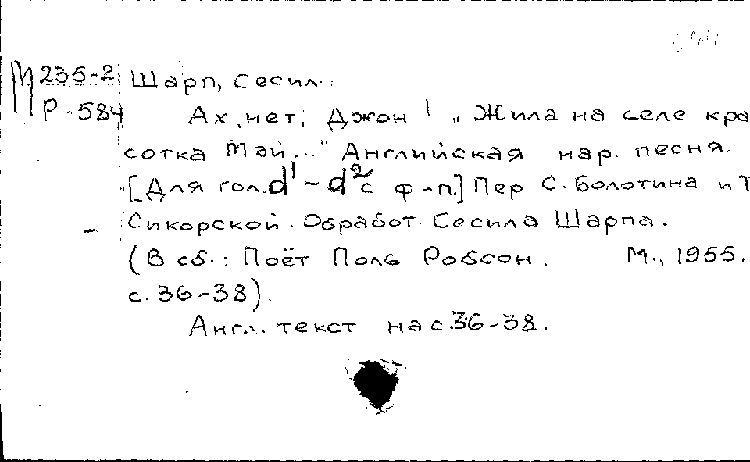 М 235-2 Шарп, Сесил.
Р-584 Ах, нет, Джон! „Жила на селе кра
сотка Мэй..." Английская нар. песня.
[Для гол. d¹-d² с ф-п.] Пер С. Болотина и Т
Сикорской. Обработ. Сесила Шарпа.
(В сб.: Поёт Поль Робсон. М., 1955.
с. 36-38).
Англ. текст на с. 36-38.